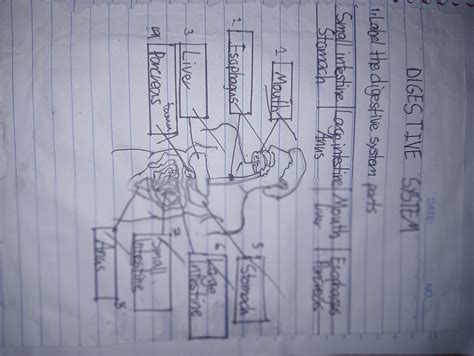 DATE:
NO:
DIGESTIVE SYSTEM
1. Label the digestive system parts
Small intestine Large intestine Mouth Esophagus
Stomach Anus Liver Pancreas
1 Mouth
2 Esophagus
3 Liver
4 Pancreas
5 Stomach
6 Large
intestine
7 Small
intestine
Anus 8